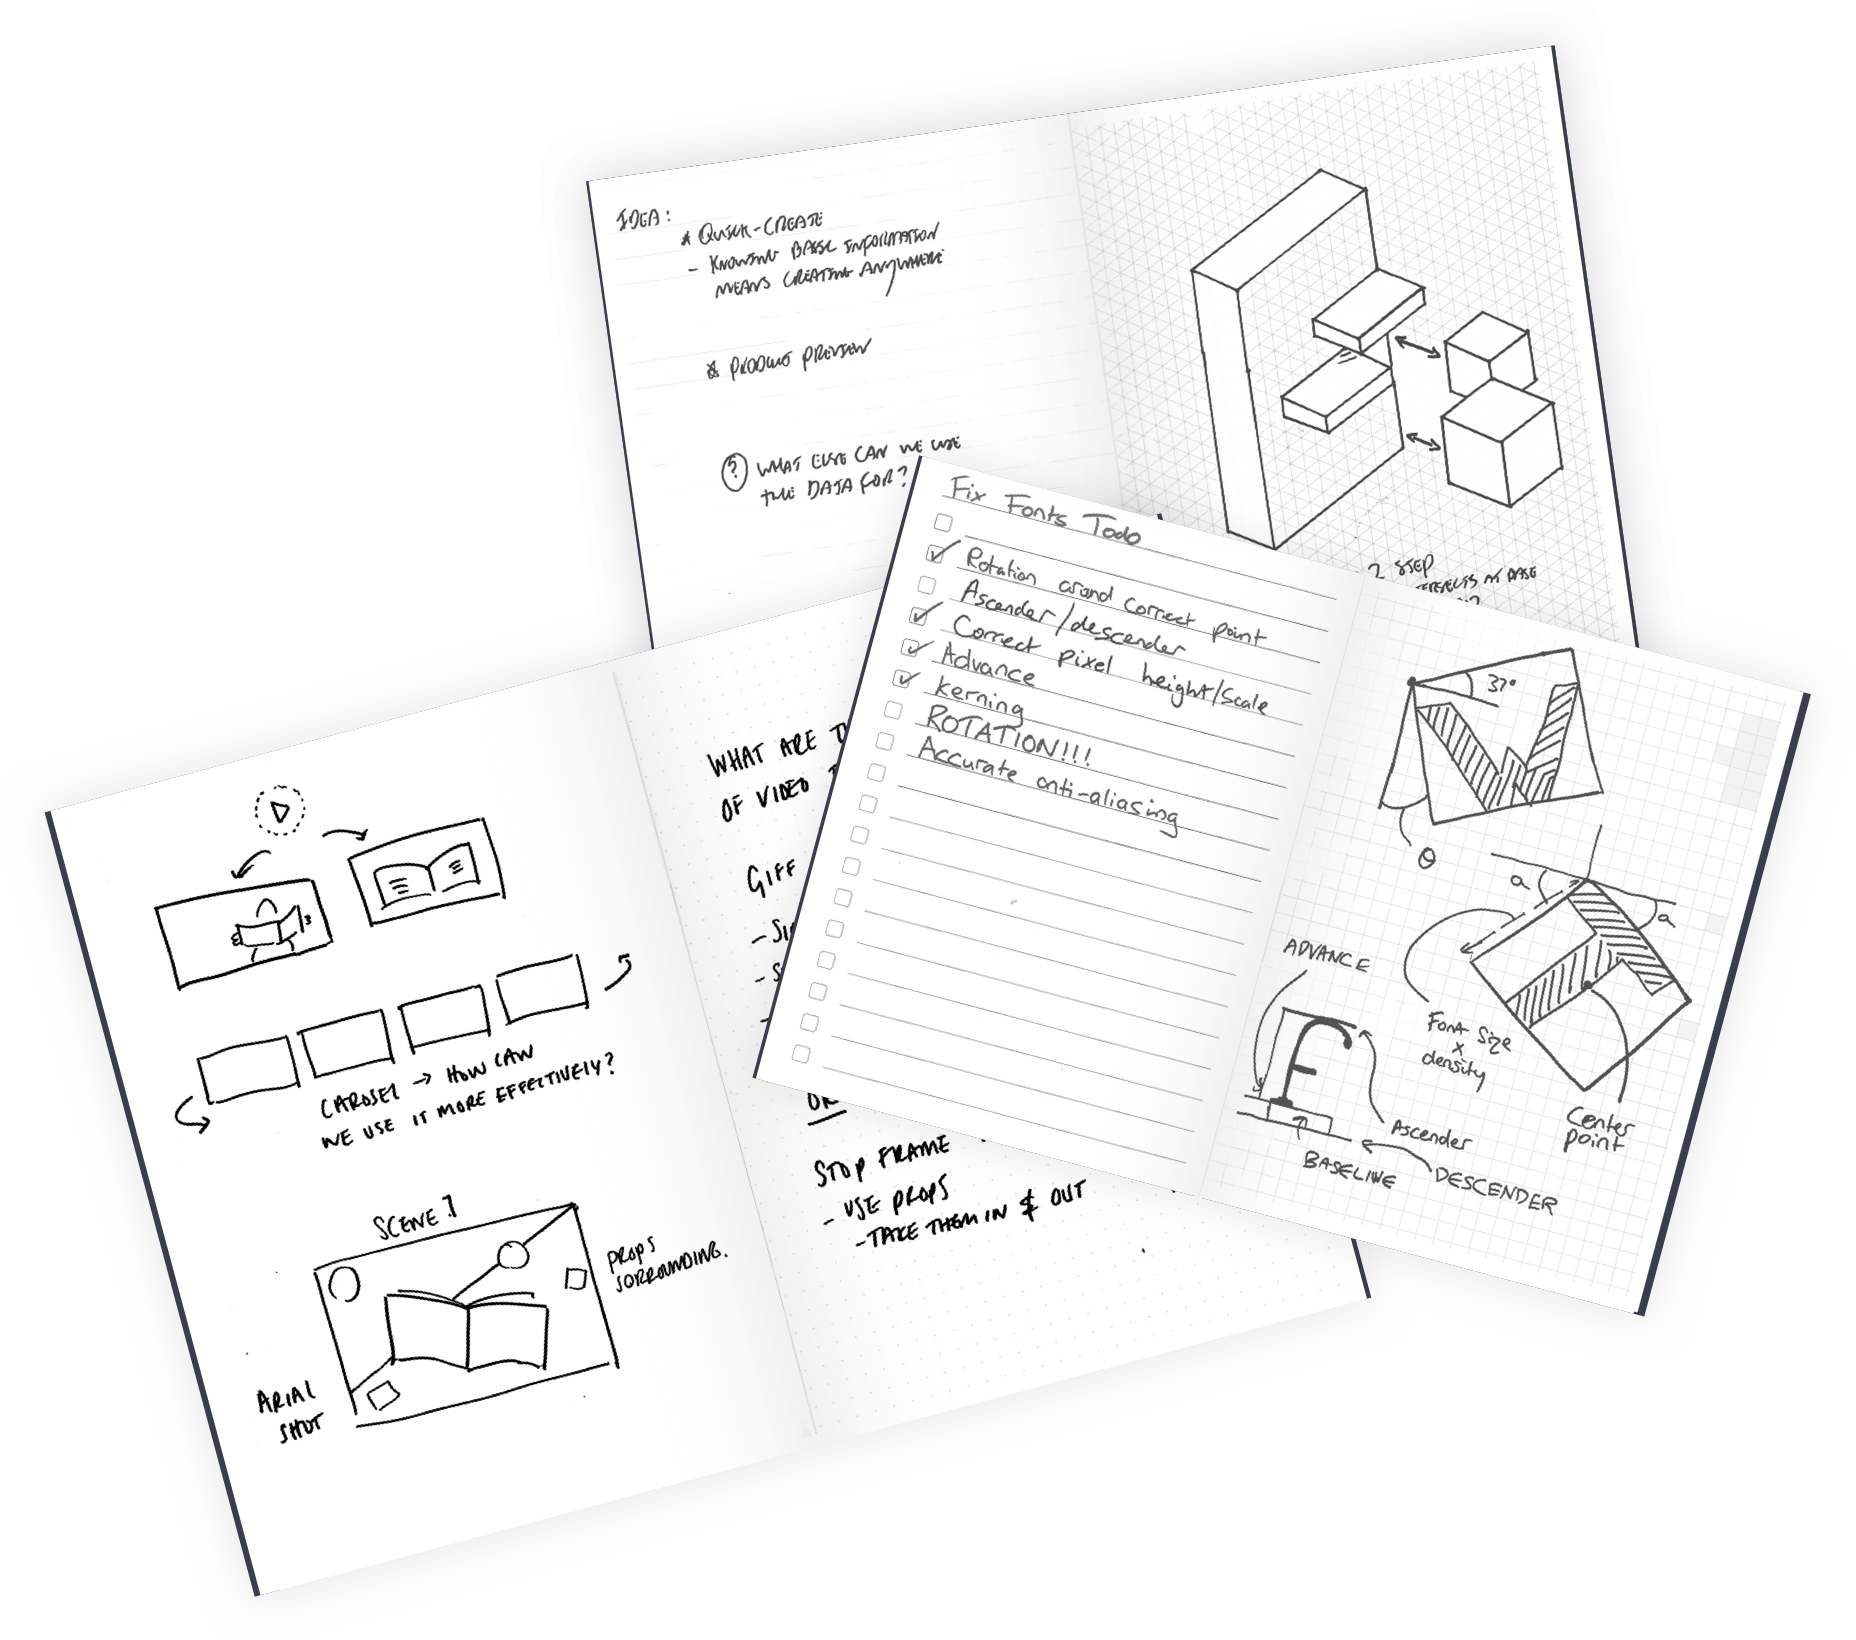 IDEA:
* QUICK-CREATE
- KNOWING BASE INFORMATION
MEANS CREATING ANYWHERE
* PRODUCT PREVIEW
? WHAT ELSE CAN WE USE
THE DATA FOR?
2 STEP
AT BASE
Fix Fonts Todo
Rotation arond correct point
Ascender/descender
Correct pixel height/scale
Advance
kerning
ROTATION!!!
Accurate anti-aliasing
37°
θ
a
a
ADVANCE
Font size
x
density
Center
point
Ascender
BASELINE
DESCENDER
CAROSEL → HOW CAN
WE USE IT MORE EFFECTIVELY?
SCENE 1
PROPS
SORROUNDING.
ARIAL
SHOT
WHAT ARE
OF VIDEO
GIFF
OR
STOP FRAME
- USE PROPS
- TAKE THEM IN & OUT